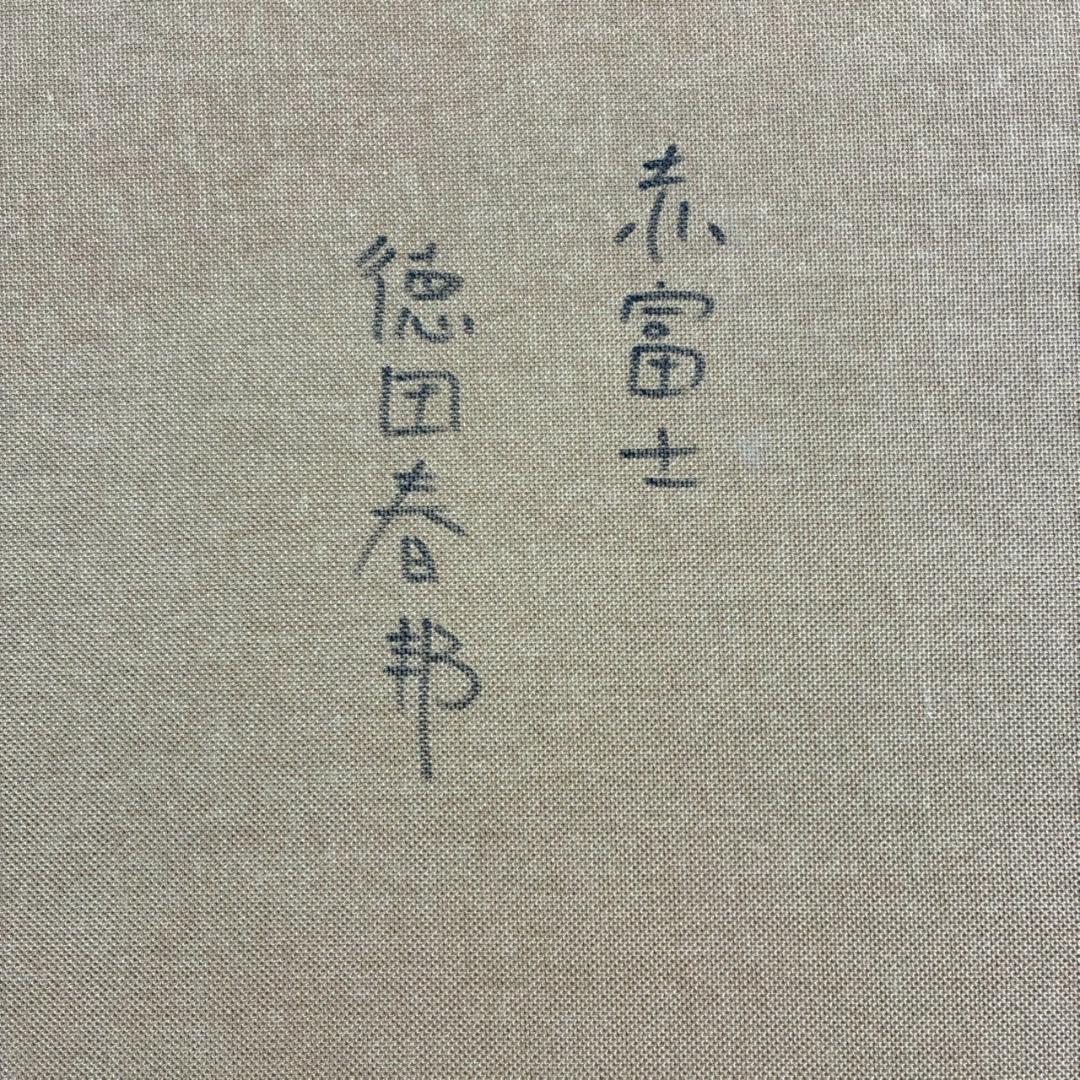 赤富士
徳田春邦